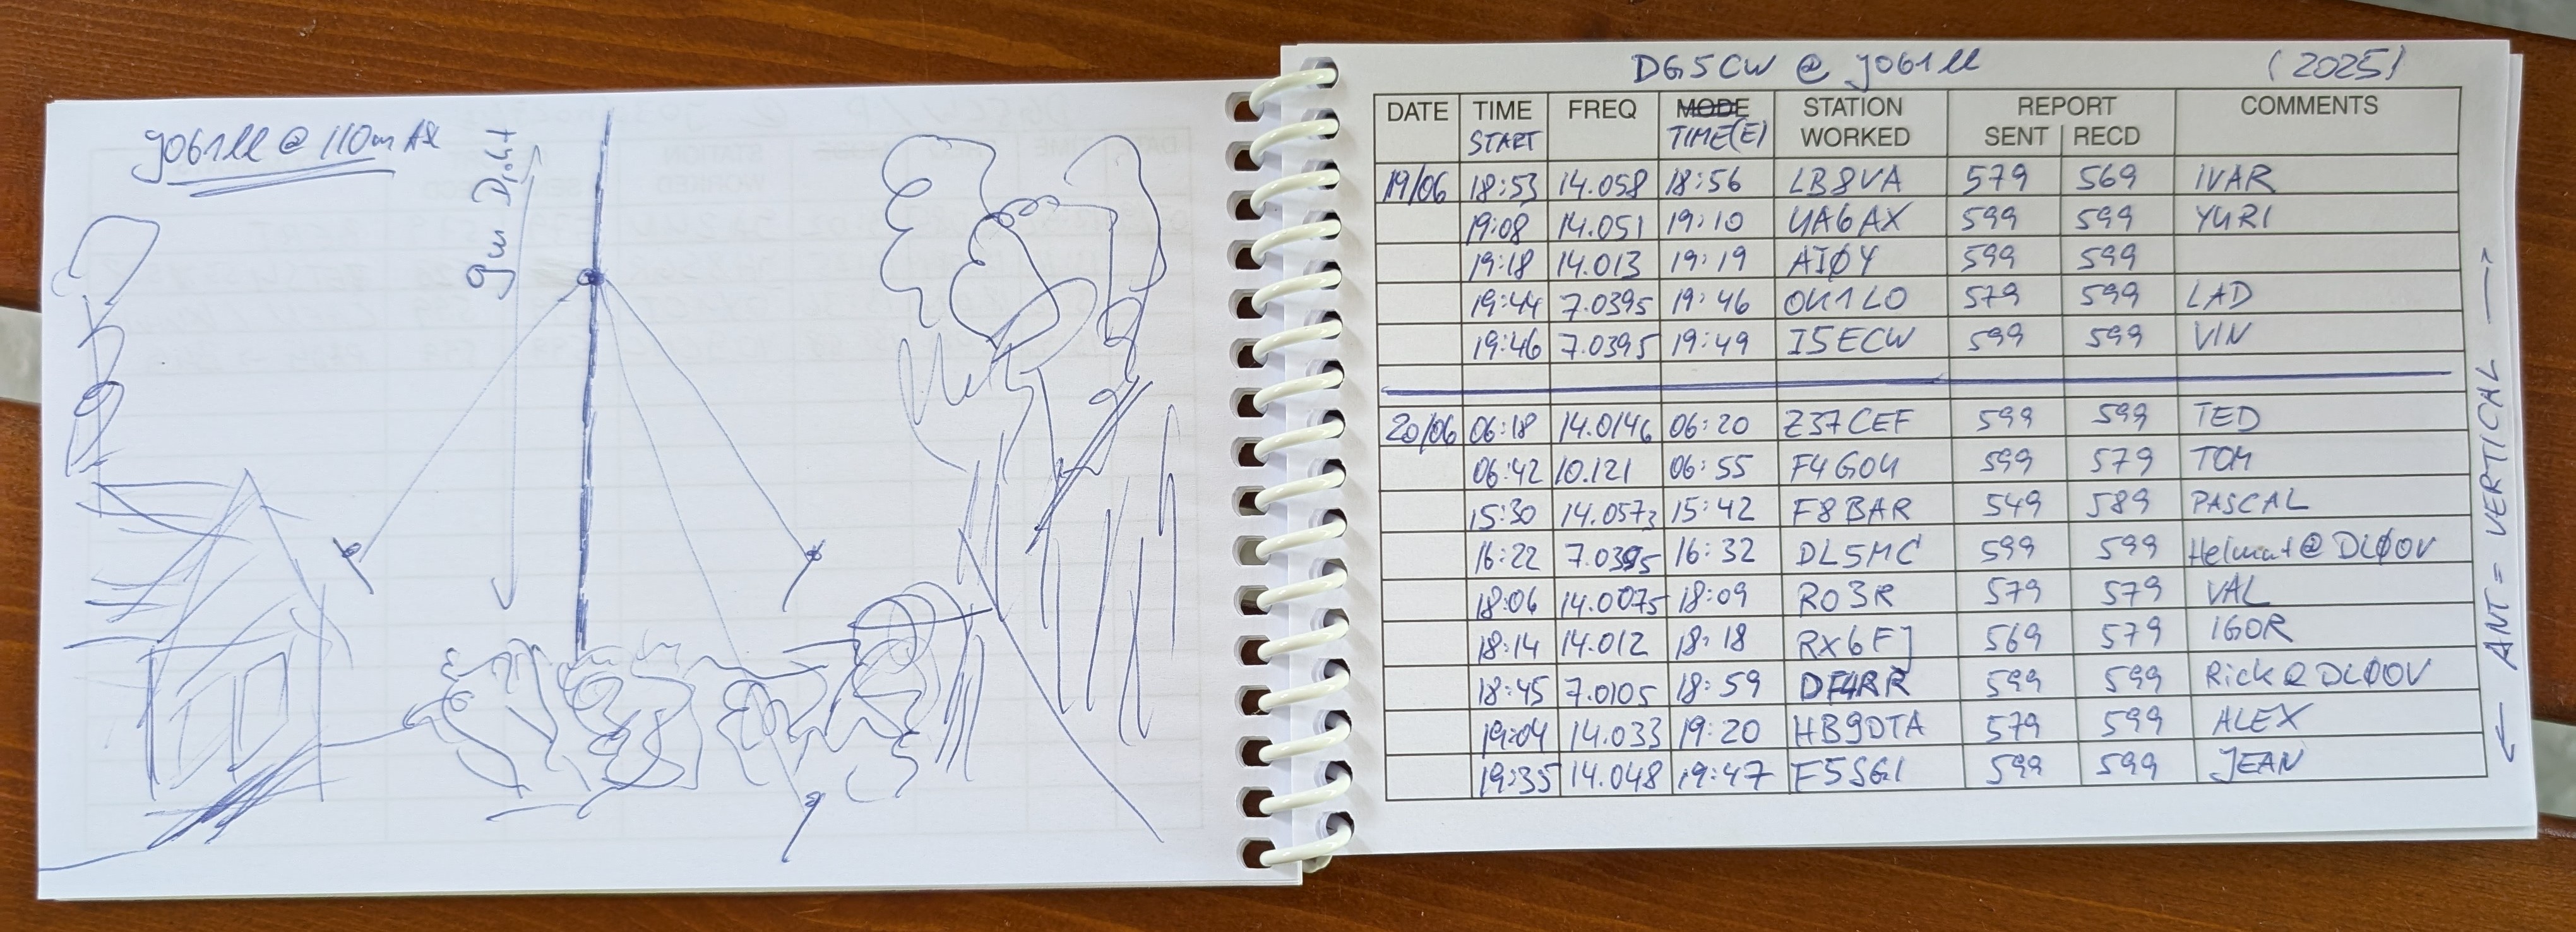 JO61ll @ 110m ASL
9m Draht
DG5CW @ JO61ll (2025)
DATE TIME FREQ MODE STATION REPORT COMMENTS
START TIME(E) WORKED SENT RECD
19/06 18:53 14.058 18:56 LB8VA 579 569 IVAR
19:08 14.051 19:10 UA6AX 599 599 YURI
19:18 14.013 19:19 AIØY 599 599
19:44 7.0395 19:46 OK1LO 579 599 LAD
19:46 7.0395 19:49 I5ECW 599 599 VIN
20/06 06:18 14.0146 06:20 Z37CEF 599 599 TED
06:42 10.121 06:55 F4GOU 599 579 TOM
15:30 14.0573 15:42 F8BAR 549 589 PASCAL
16:22 7.0395 16:32 DL5MC 599 599 Helmut @ DLØOV
18:06 14.0075 18:09 RO3R 579 579 VAL
18:14 14.012 18:18 RX6FJ 569 579 IGOR
18:45 7.0105 18:59 DF4RR 599 599 Rick @ DLØOV
19:04 14.033 19:20 HB9DTA 579 599 ALEX
19:35 14.048 19:47 F5SGI 599 599 JEAN
← ANT = VERTICAL →